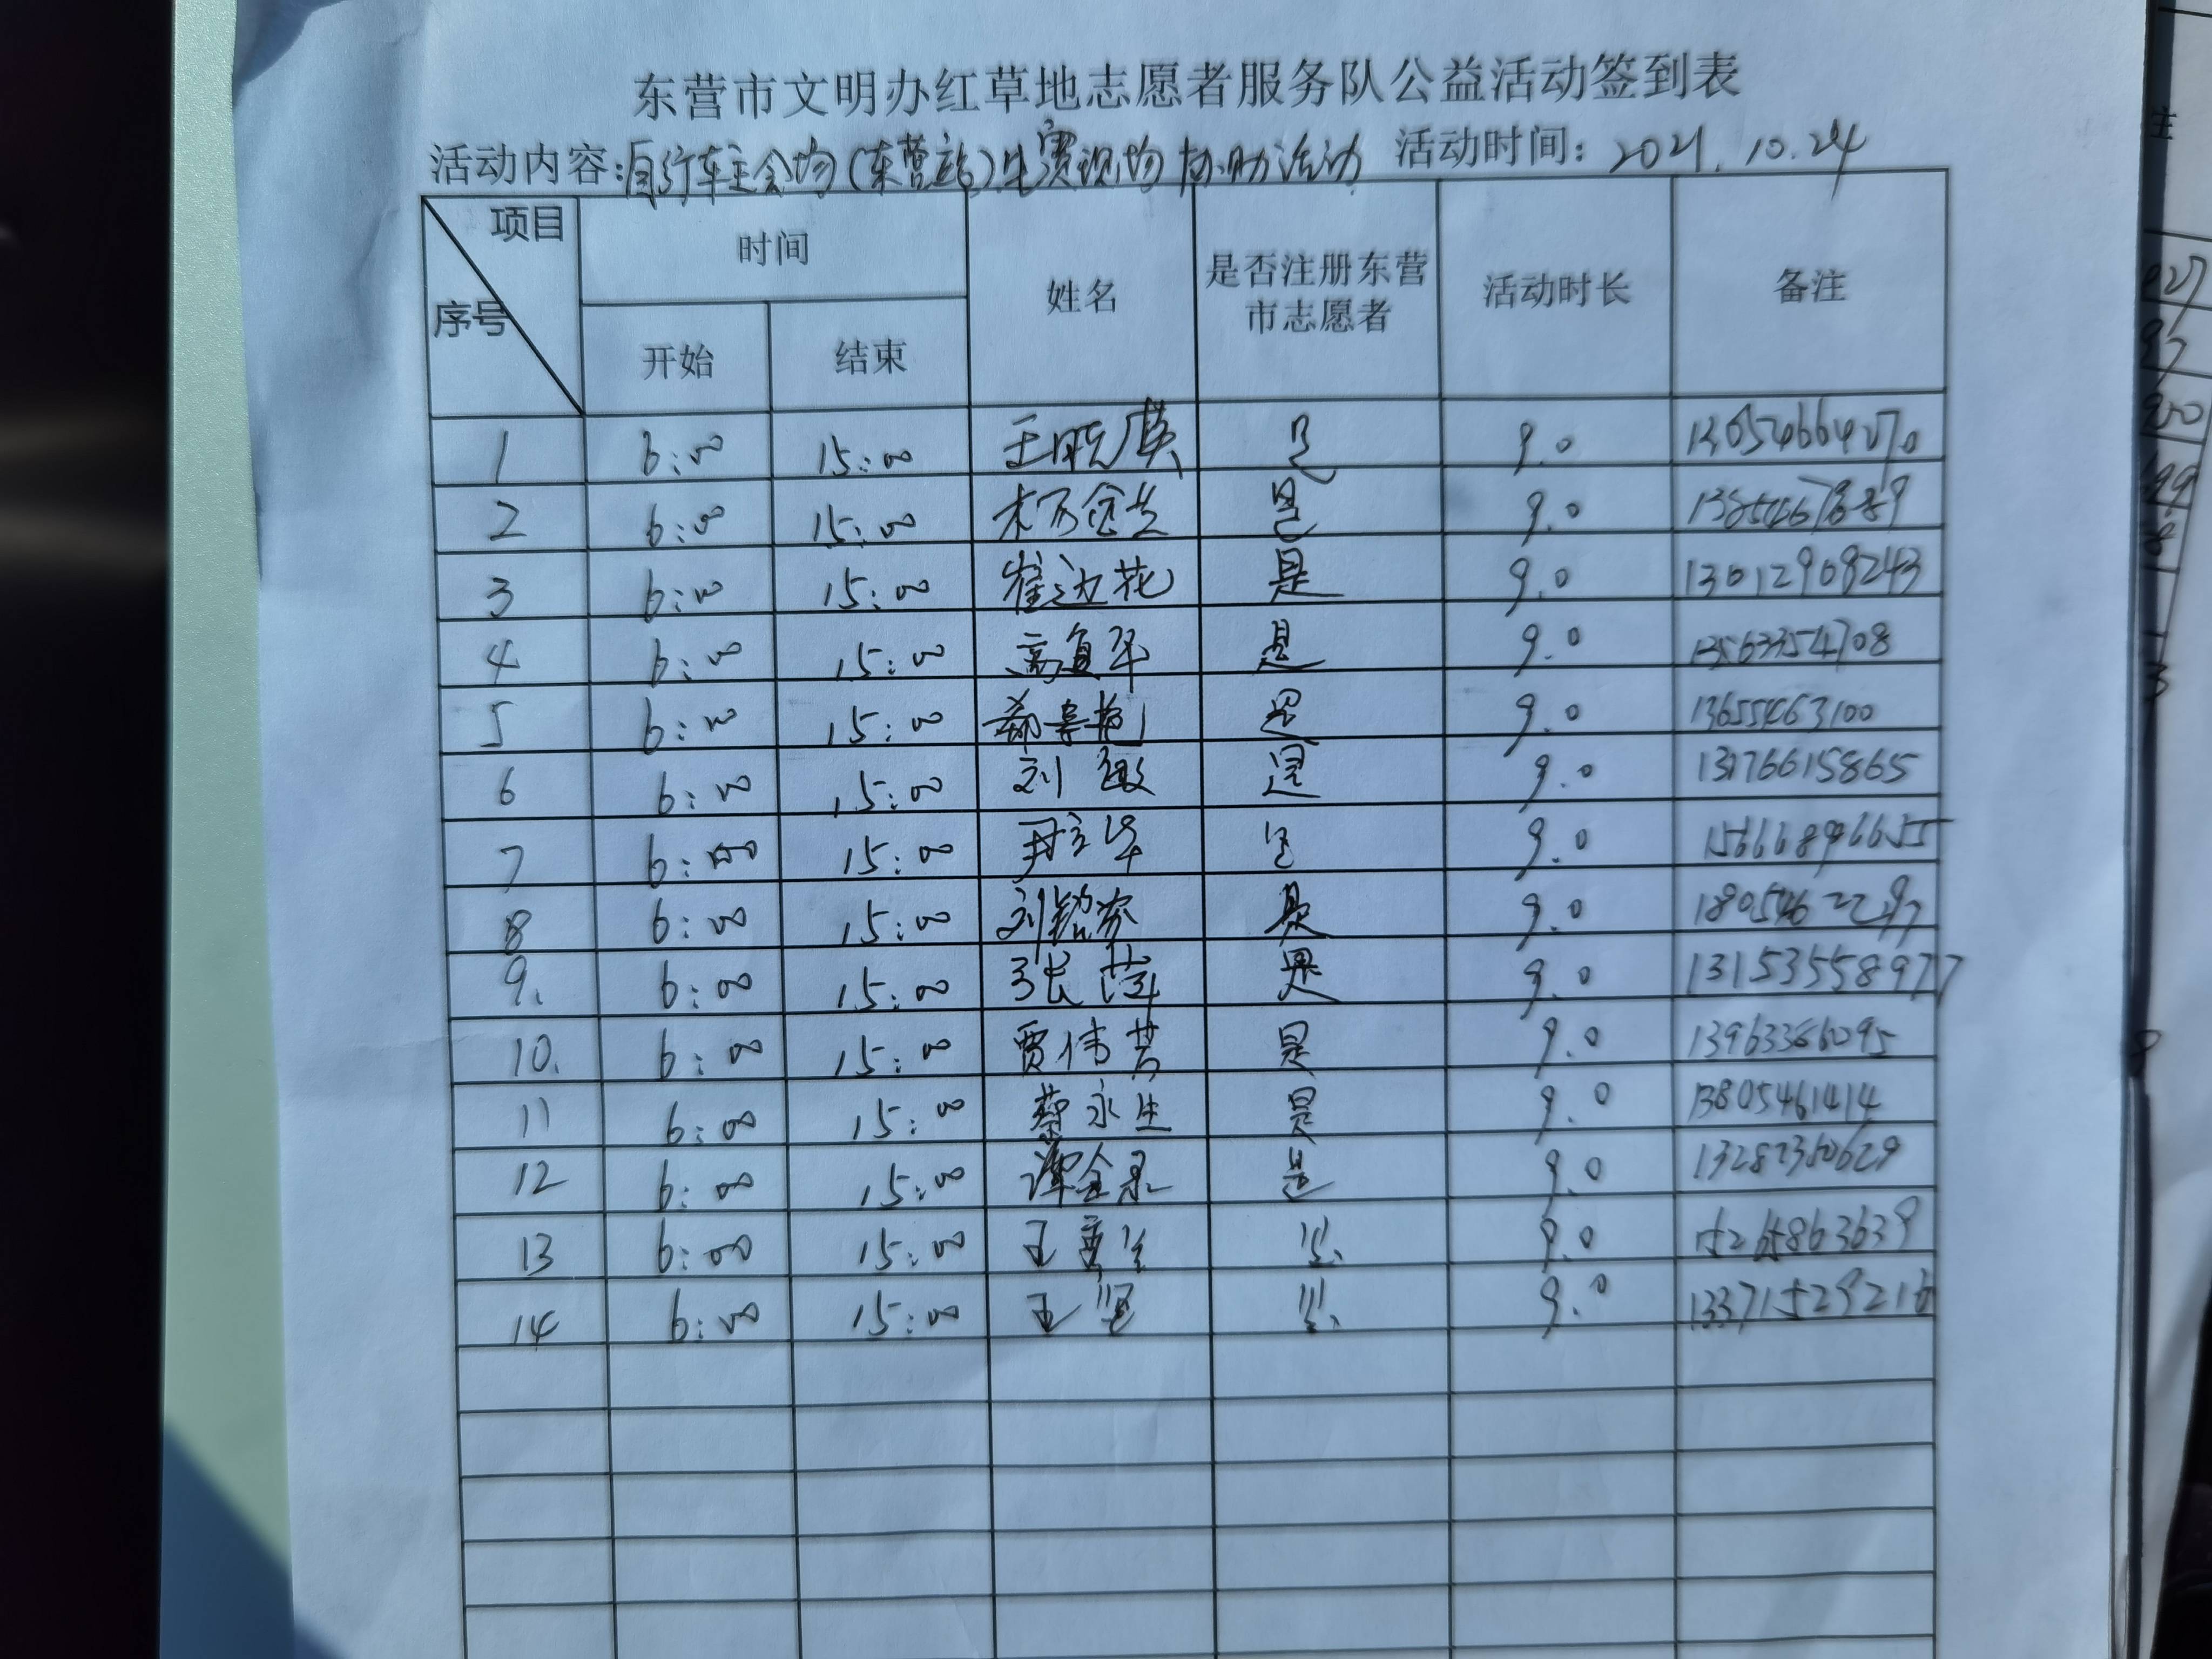 东营市文明办红草地志愿者服务队公益活动签到表
活动内容:自行车主会场(东营站)比赛现场协助活动 活动时间: 2021.10.24
项目 序号 时间 姓名 是否注册东营市志愿者 活动时长 备注
开始 结束
1 6:00 15:00 王晓英 是 9.0
2 6:00 15:00 是 9.0
3 6:00 15:00 崔边花 是 9.0 13012908243
4 6:00 15:00 是 9.0 13563354708
5 6:00 15:00 是 9.0 13655463100
6 6:00 15:00 刘敏 是 9.0
7 6:00 15:00 是 9.0
8 6:00 15:00 刘铭芬 是 9.0
9. 6:00 15:00 张萍 是 9.0 13153558977
10. 6:00 15:00 贾伟芳 是 9.0 13963386095
11 6:00 15:00 蔡永生 是 9.0 13805461414
12 6:00 15:00 谭金录 是 9.0
13 6:00 15:00 王 是 9.0 15265863639
14 6:00 15:00 王坚 是 9.0